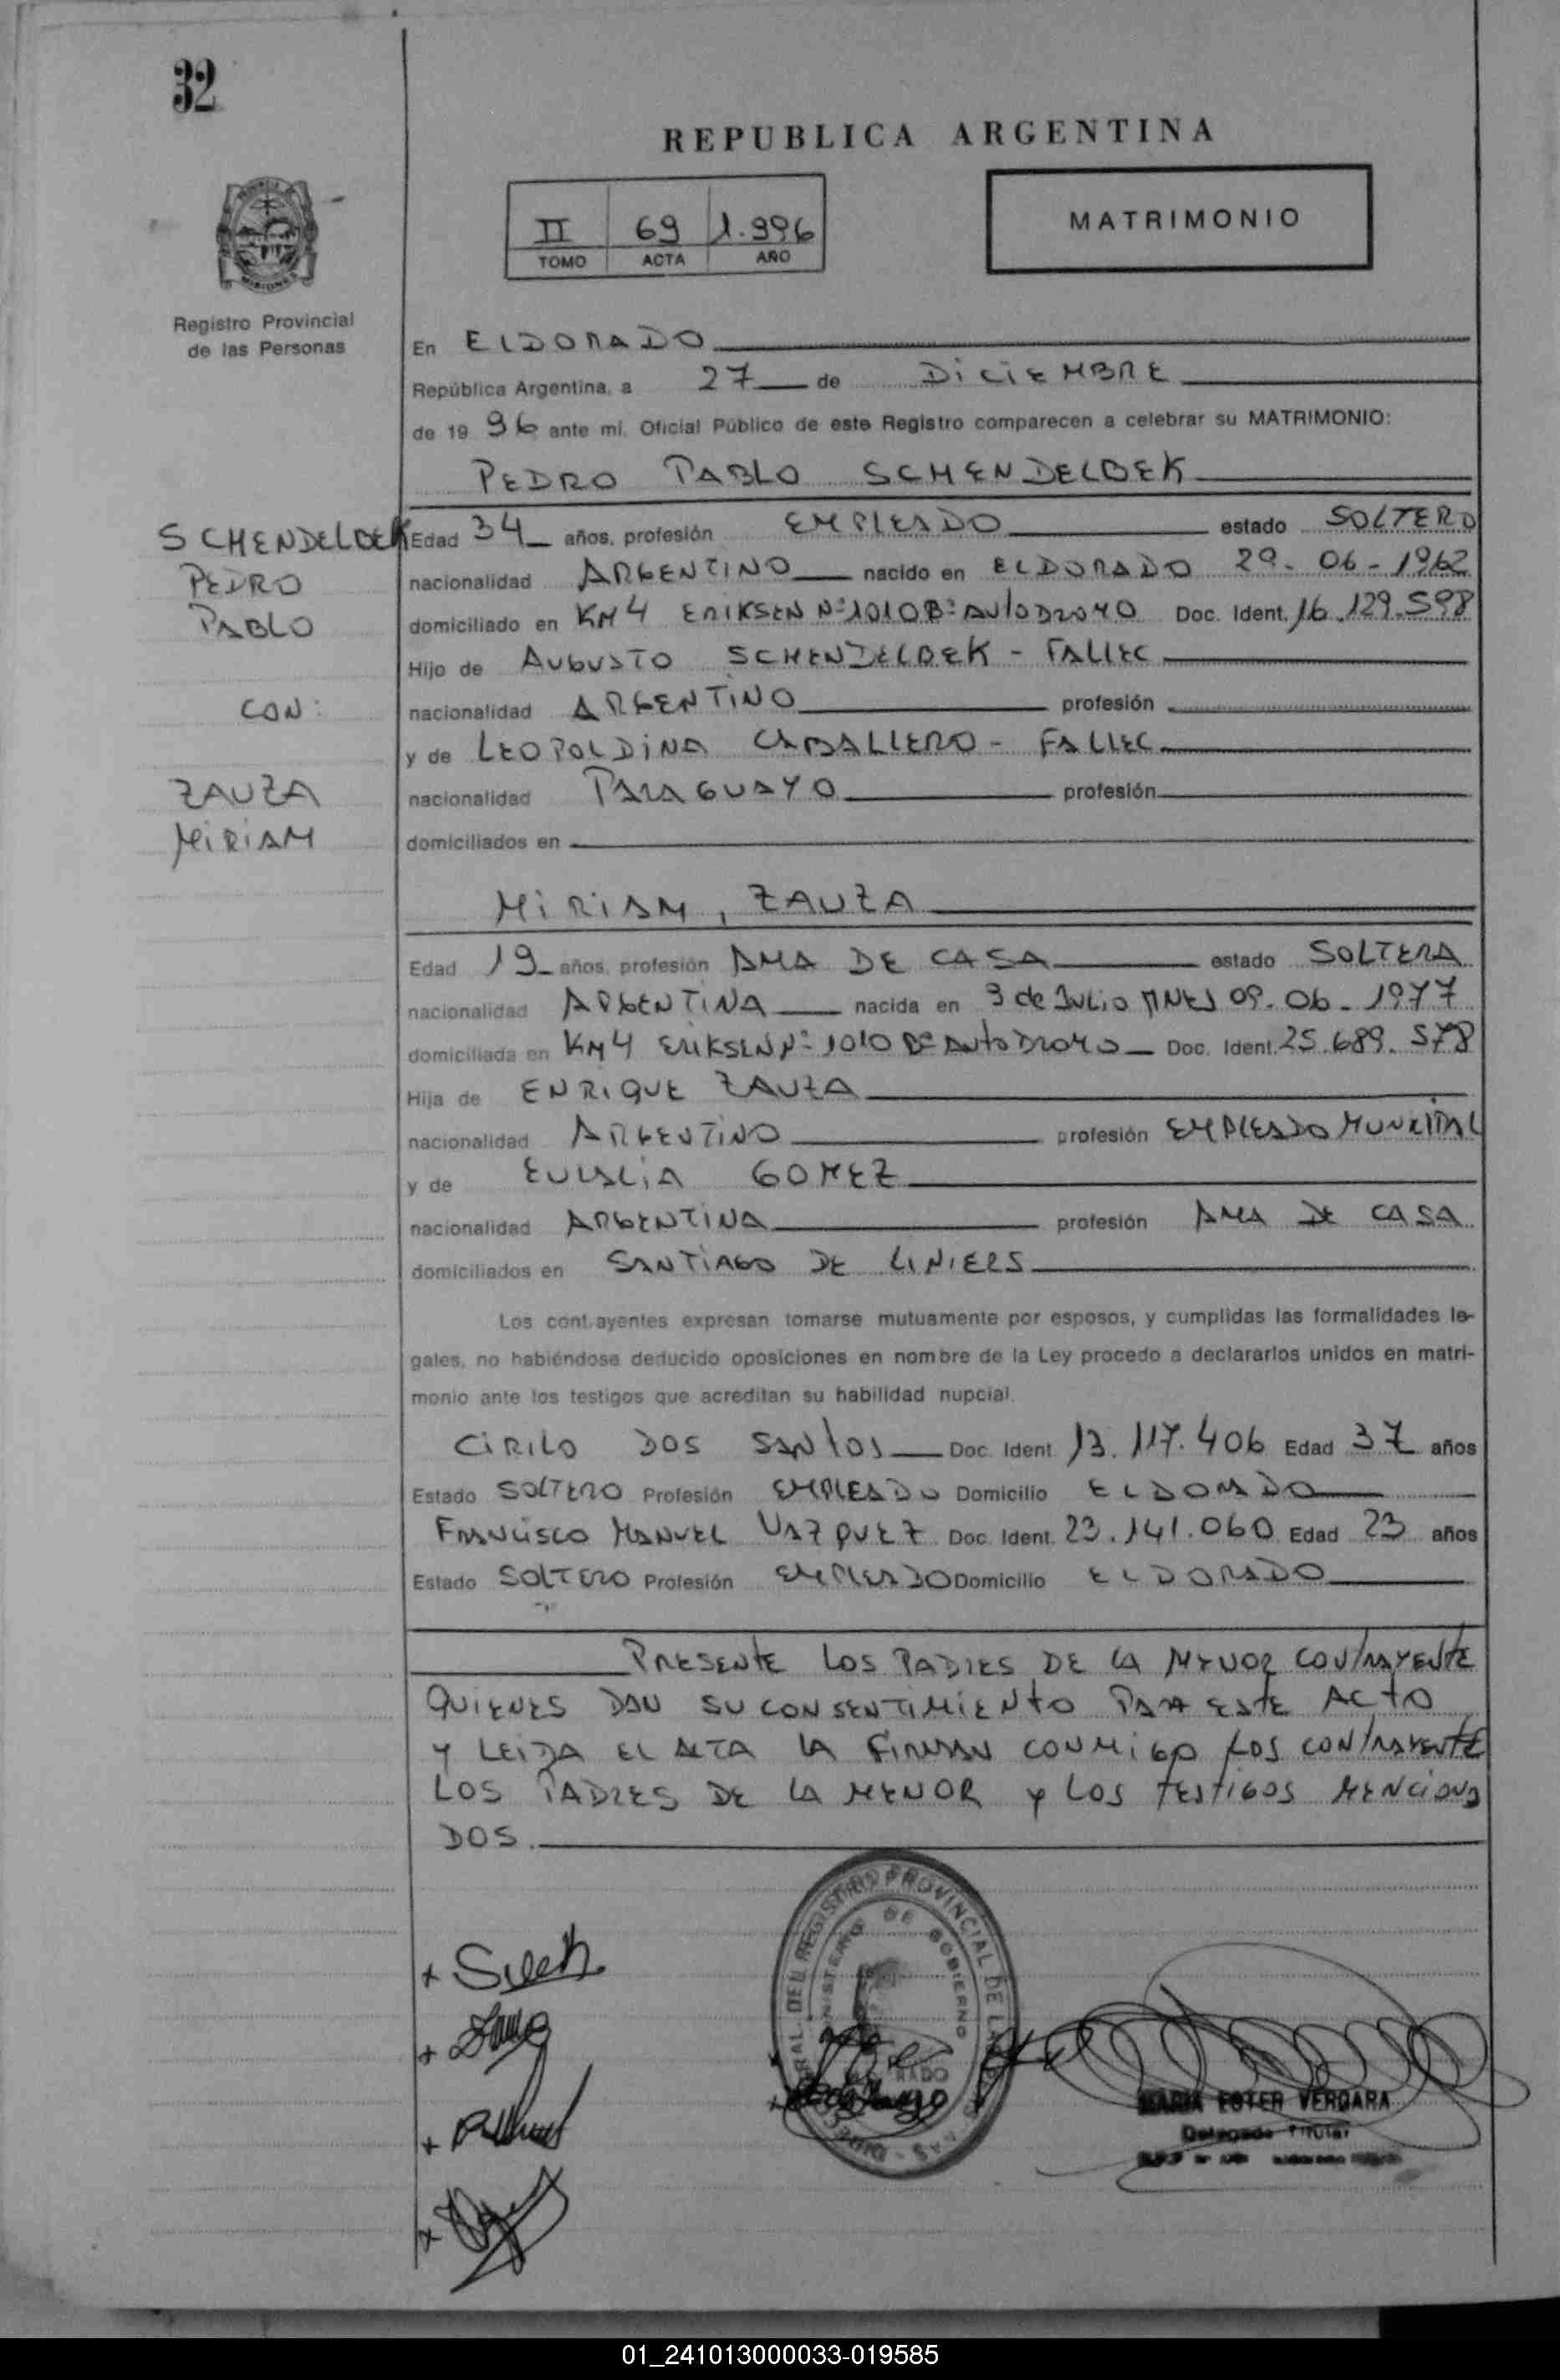 32
REPUBLICA ARGENTINA
II 69 1.996
TOMO ACTA AÑO
MATRIMONIO
Registro Provincial
de las Personas
En ELDORADO
República Argentina, a 27 de DiCiEMBRE
de 19 96 ante mí, Oficial Público de este Registro comparecen a celebrar su MATRIMONIO:
PEDRO PABLO SCHENDELBEK
SCHENDELBEK
PEDRO
PABLO
CON:
ZAUZA
MiRiAM
Edad 34 años, profesión EMPLEADO estado SOLTERO
nacionalidad ARGENTINO nacido en ELDORADO 29-06-1962
domiciliado en KM4 ERIKSEN Nº1010 Bº AUTODROMO Doc. Ident. 16.129.598
Hijo de AUGUSTO SCHENDELBEK - FALLEC
nacionalidad ARGENTINO profesión
y de LEOPOLDINA CABALLERO - FALLEC
nacionalidad PARAGUAYO profesión
domiciliados en
MIRIAM, ZAUZA
Edad 19 años, profesión AMA DE CASA estado SOLTERA
nacionalidad ARGENTINA nacida en 9 de JULIO MNES 09-06-1977
domiciliada en KM4 ERIKSEN Nº 1010 Bº AUTODROMO Doc. Ident. 25.689.578
Hija de ENRIQUE ZAUZA
nacionalidad ARGENTINO profesión EMPLEADO MUNICIPAL
y de EULALIA GOMEZ
nacionalidad ARGENTINA profesión AMA DE CASA
domiciliados en SANTIAGO DE LINIERS
Los contrayentes expresan tomarse mutuamente por esposos, y cumplidas las formalidades le-
gales, no habiéndose deducido oposiciones en nombre de la Ley procedo a declararlos unidos en matri-
monio ante los testigos que acreditan su habilidad nupcial.
CIRILO DOS SANTOS Doc. Ident. 13.117.406 Edad 37 años
Estado SOLTERO Profesión EMPLEADO Domicilio ELDORADO
FRANCISCO MANUEL VAZQUEZ Doc. Ident. 23.141.060 Edad 23 años
Estado SOLTERO Profesión EMPLEADO Domicilio ELDORADO
PRESENTE LOS PADRES DE LA MENOR CONTRAYENTE
QUIENES DAN SU CONSENTIMIENTO PARA ESTE ACTO
Y LEIDA EL ACTA LA FIRMAN CONMIGO LOS CONTRAYENTE
LOS PADRES DE LA MENOR Y LOS TESTIGOS MENCIONA
DOS.
DEL REGISTRO PROVINCIAL DE LAS
MINISTERIO DE GOBIERNO
MARIA ESTER VERGARA
Delegada Titular
01_241013000033-019585